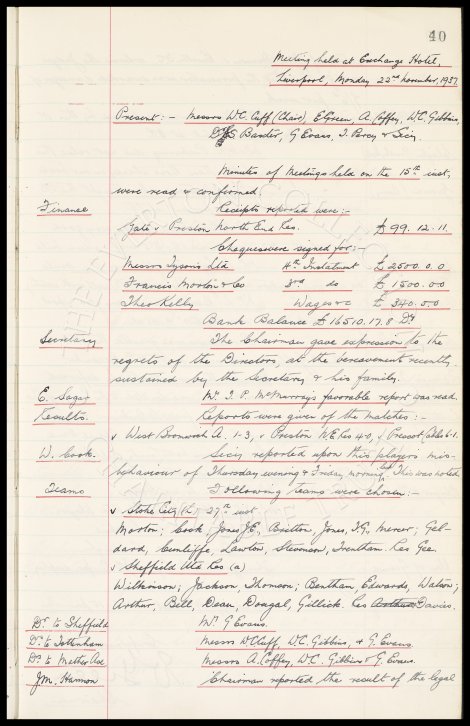 40
Meeting held at Exchange Hotel,
Liverpool, Monday 22nd November, 1937.
Present :- Messrs W.C. Cuff (Chair), E. Green, A. Coffey, W.C. Gibbins,
Dr C.S. Baxter, G. Evans, T. Percy & Secy.
Minutes of Meetings held on the 15th inst,
were read & confirmed.
Finance
Receipts reported were :-
Gate v Preston North End Res. £99. 12. 11.
Cheques were signed for :-
Messrs Tysons Ltd 4th Instalment £2500. 0. 0
Francis Morton & Co 3rd do £1500. 0. 0
Theo Kelly Wages &c £340. 0. 0
Bank Balance £16510. 17. 8 Dr
Secretary
The Chairman gave expression to the
regrets of the Directors, at the bereavement recently
sustained by the Secretary & his family.
E. Sagar
Mr. J. P. McMurray's favorable report was read.
Results.
Reports were given of the matches :-
v West Bromwich A. 1-3, v Preston N E Res 4-0, v Prescot Cables 6-1.
W. Cook.
Secy reported upon this players mis-
behaviour of Thursday evening & Friday morning. This was noted
Teams
Following teams were chosen :-
v Stoke City (h) 27th inst
Morton; Cook, Jones J.E., Britton, Jones, T.G., Mercer; Gel-
dard, Cunliffe, Lawton, Stevenson, Trentham. Res Gee.
v Sheffield Utd Res (a)
Wilkinson; Jackson, Thomson; Bentham, Edwards, Watson;
Arthur, Bell, Dean, Dougal, Gillick. Res Arthur Davies.
Dr. to Sheffield Mr. G Evans.
Dr. to Tottenham Messrs W C Cuff, W.C. Gibbins, & G. Evans.
Messrs A. Coffey, W.C. Gibbins & G. Evans.
J.M. Harmon Chairman reported the result of the legal